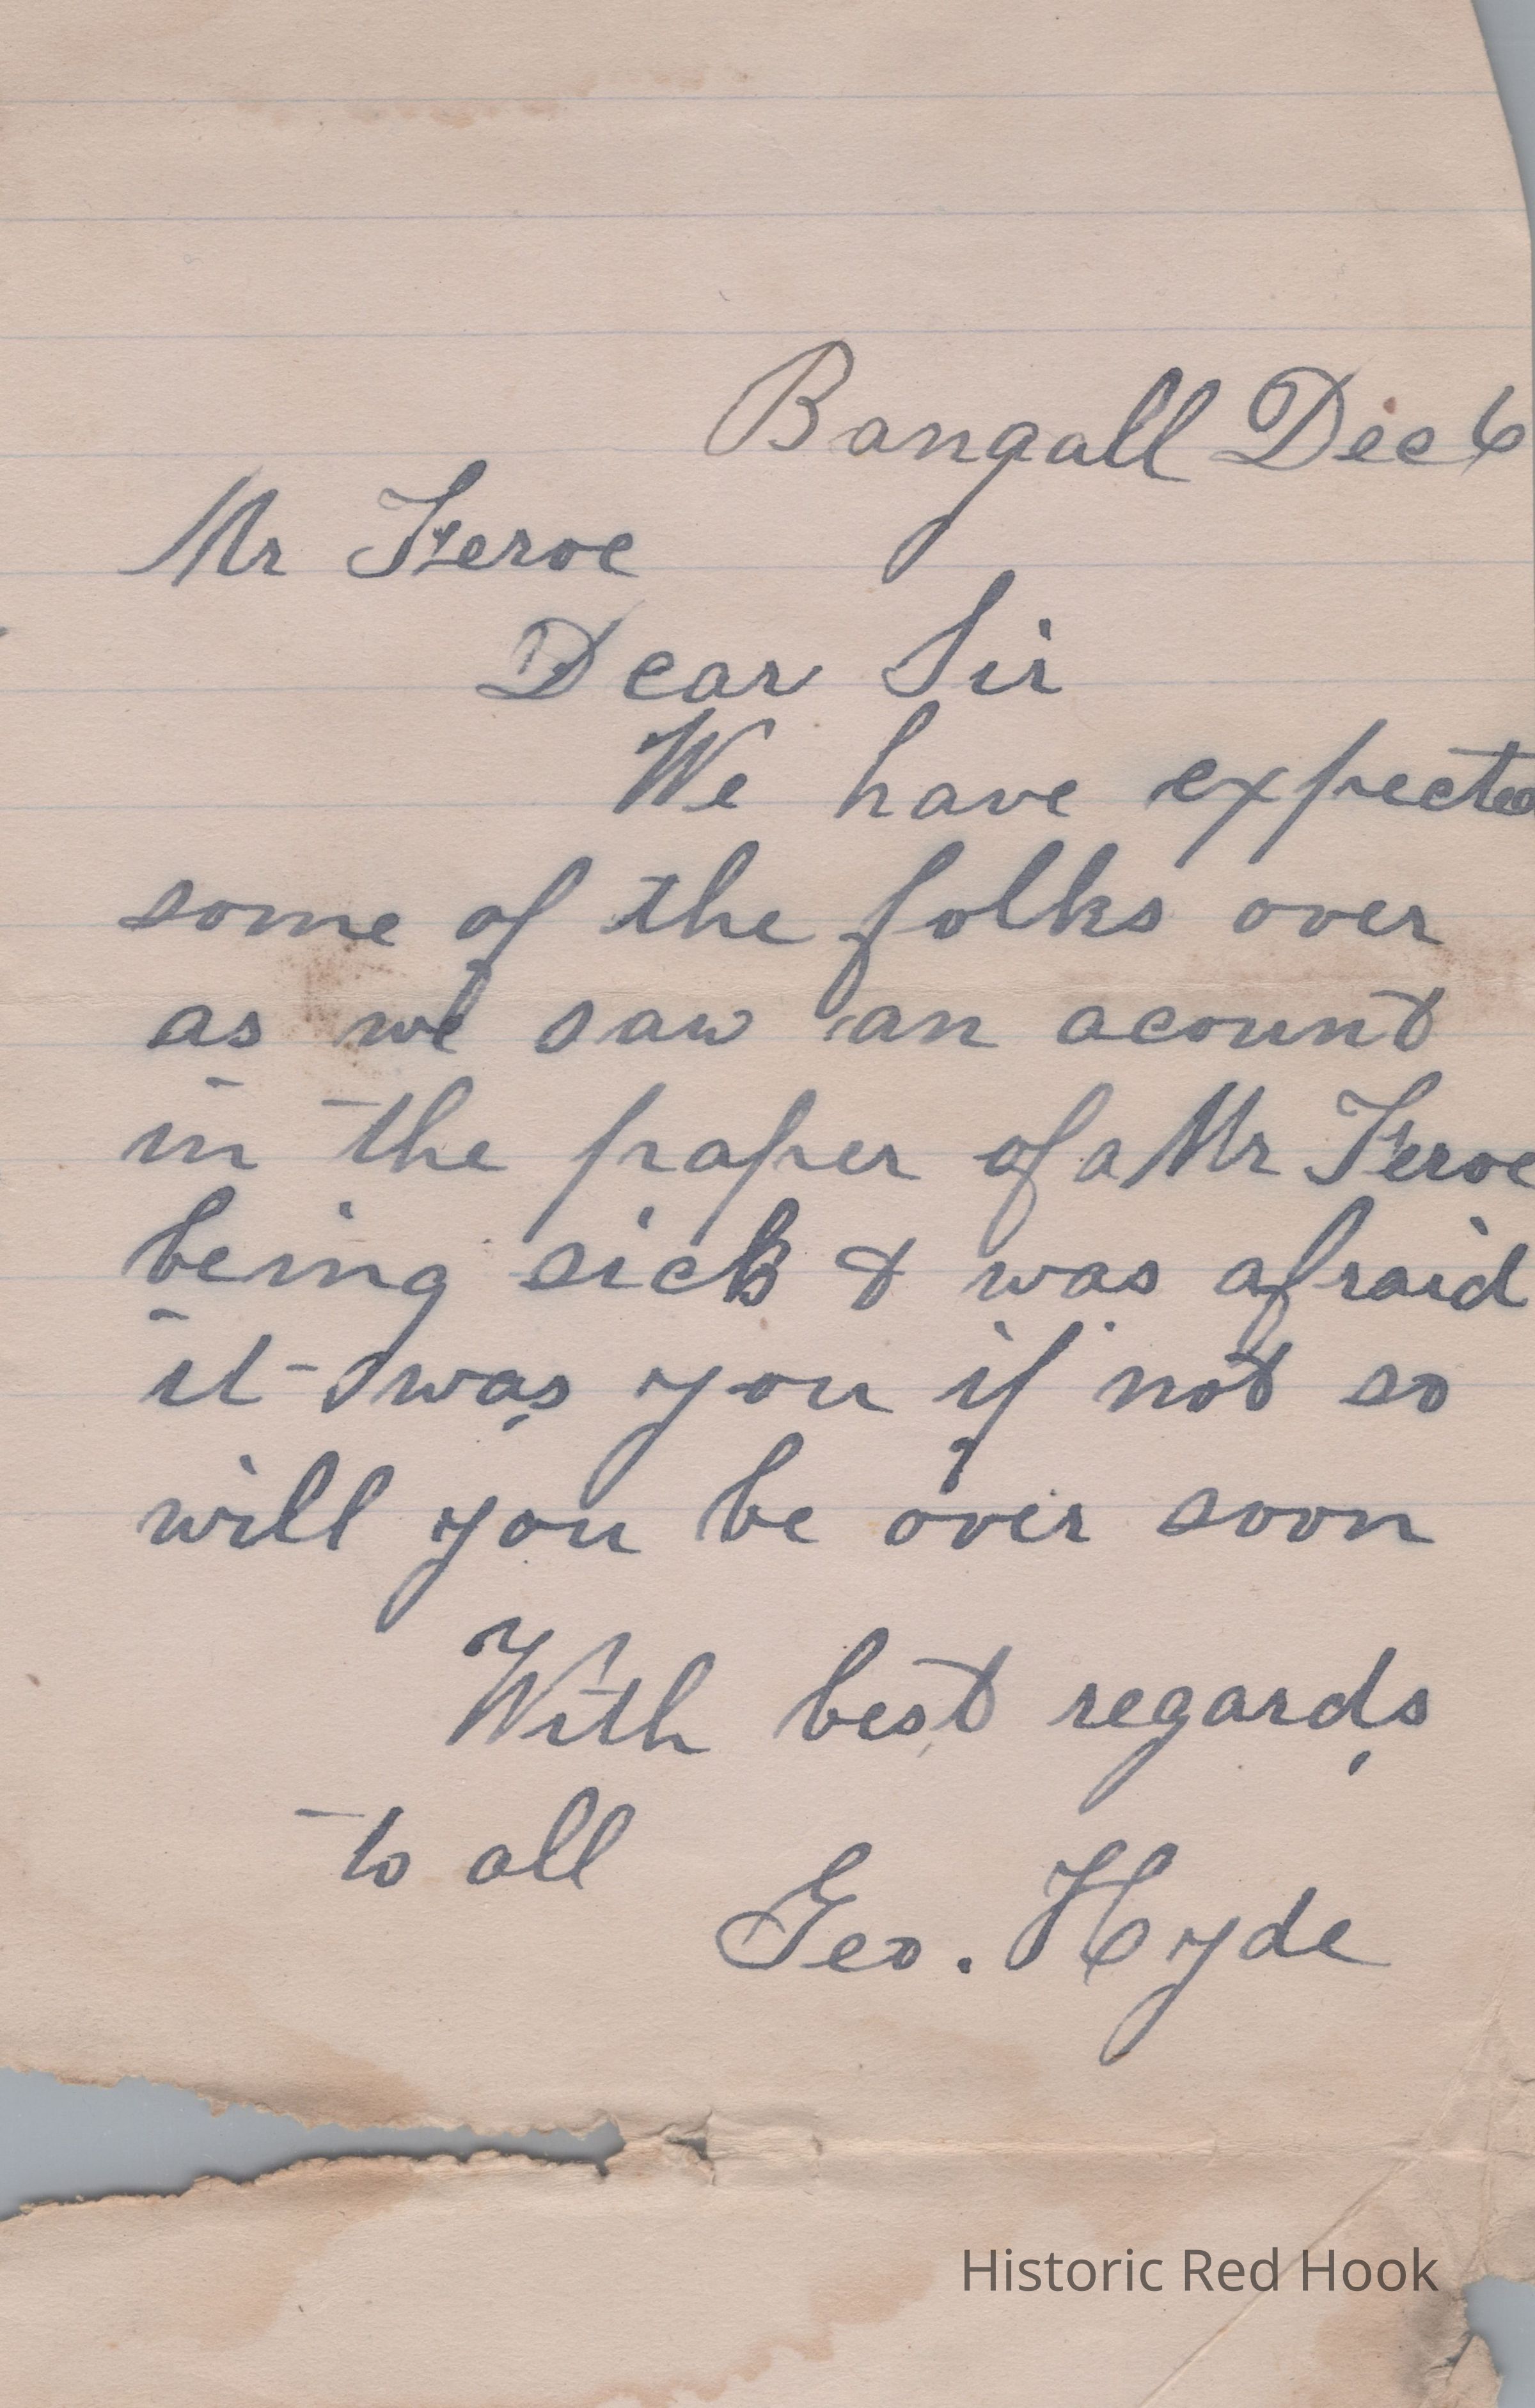 Bangall Dec 6
Mr Feroe
Dear Sir
We have expected
some of the folks over
as we saw an acount
in the paper of a Mr Feroe
being sick & was afraid
it was you if not so
will you be over soon
With best regards
to all
Geo. Hyde
Historic Red Hook